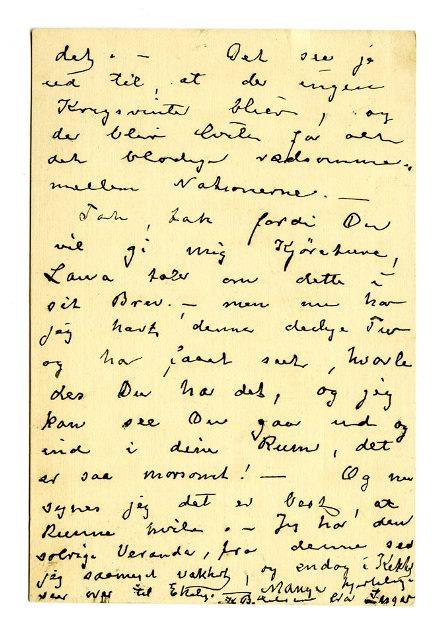 det. — Det ser jo
ud til, at der ingen
Krigsvinter bliver, og
der bliver hvile for alt
det blodige rædsomme
mellem Nationerne. —
Tak, tak fordi Du
vil gi mig Kjøreture,
Laura taler om dette i
sit Brev. — men nu har
jeg havt denne deilige Tur
og har faaet seet, hvorle
des Du har det, og jeg
kan see Du gaar ud og
ind i dine Rum, det
er saa morsomt! — Og nu
synes jeg det er bedst, at
Rumme hviler. — Jeg har den
solrige Veranda, fra denne ser
jeg saameget vakkert, og endog i
ser over til Ekely. Mange hjertelige
fra